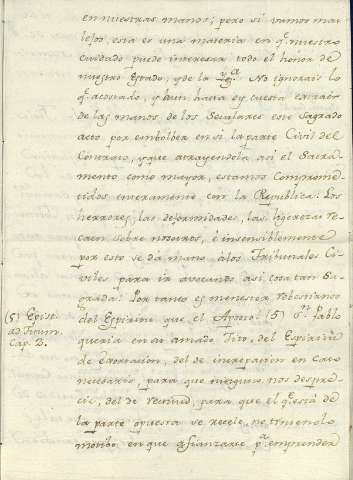 en nuestras manos; pero si vamos mas
lejos, esta es una materia en q.e nuestro
cuidado puede interesar todo el honor de
nuestro Estado, y de la Ygl.a No ignorais lo
q.e a costado, y aun hasta oy cuesta extraer
de las manos de los Seculares este Sagrado
acto por embolber en si la parte Civil del
Contrato, y que atrayendola asi el Sacra-
mento como mayor, estamos Comprome-
tidos enteramente con la Republica: Los
herrores, las deformidades, las ligerezas re-
caen sobre nosotros, è insensiblemente
por esto se da mano à los Tribunales Ci-
viles para ir avocando asi cosa tan Sa-
grada: Por tanto es menester rebestirnos
del Espiritu que el Apostol (5) S.n Pablo
queria en su amado Tito, del Espiritu
de Exortacion, del de increpacion en caso
necesario, para que ninguno nos despre-
cie, del de verdad, para que el q.e està de
la parte opuesta se recele, no teniendo
motibo en que afianzarse p.a emprender
(5) Epist.
ad Titum
Cap. 2.